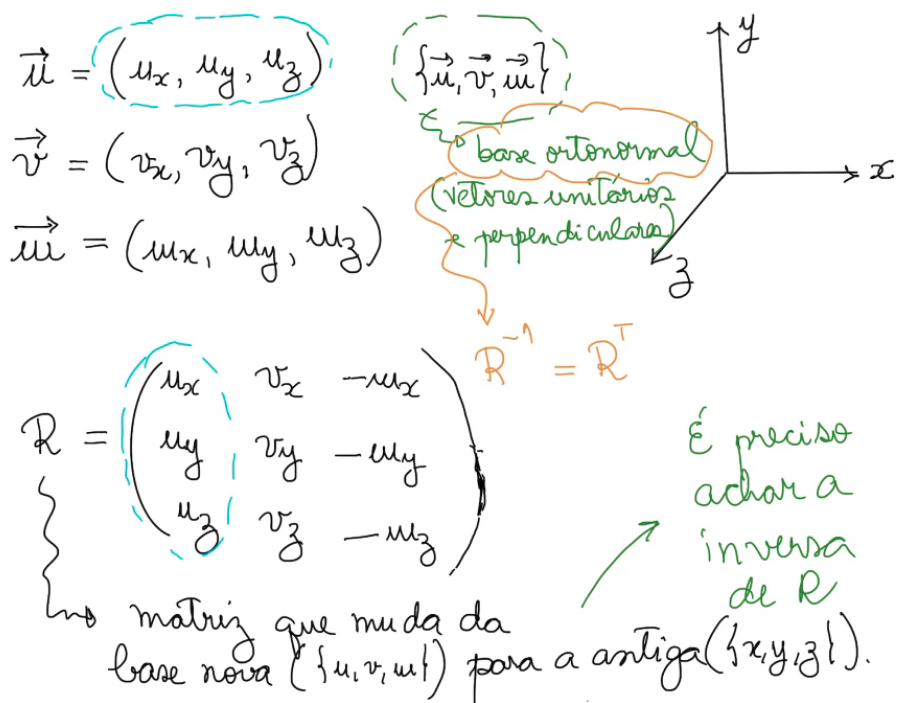 u⃗ = (ux, uy, uz)
v⃗ = (vx, vy, vz)
w⃗ = (wx, wy, wz)
{u⃗, v⃗, w⃗}
base ortonormal
(vetores unitários
e perpendiculares)
y
x
z
R⁻¹ = Rᵀ
R = ( ux vx -wx
uy vy -wy
uz vz -wz )
É preciso
achar a
inversa
de R
matriz que muda da
base nova ({u,v,w}) para a antiga ({x,y,z}).